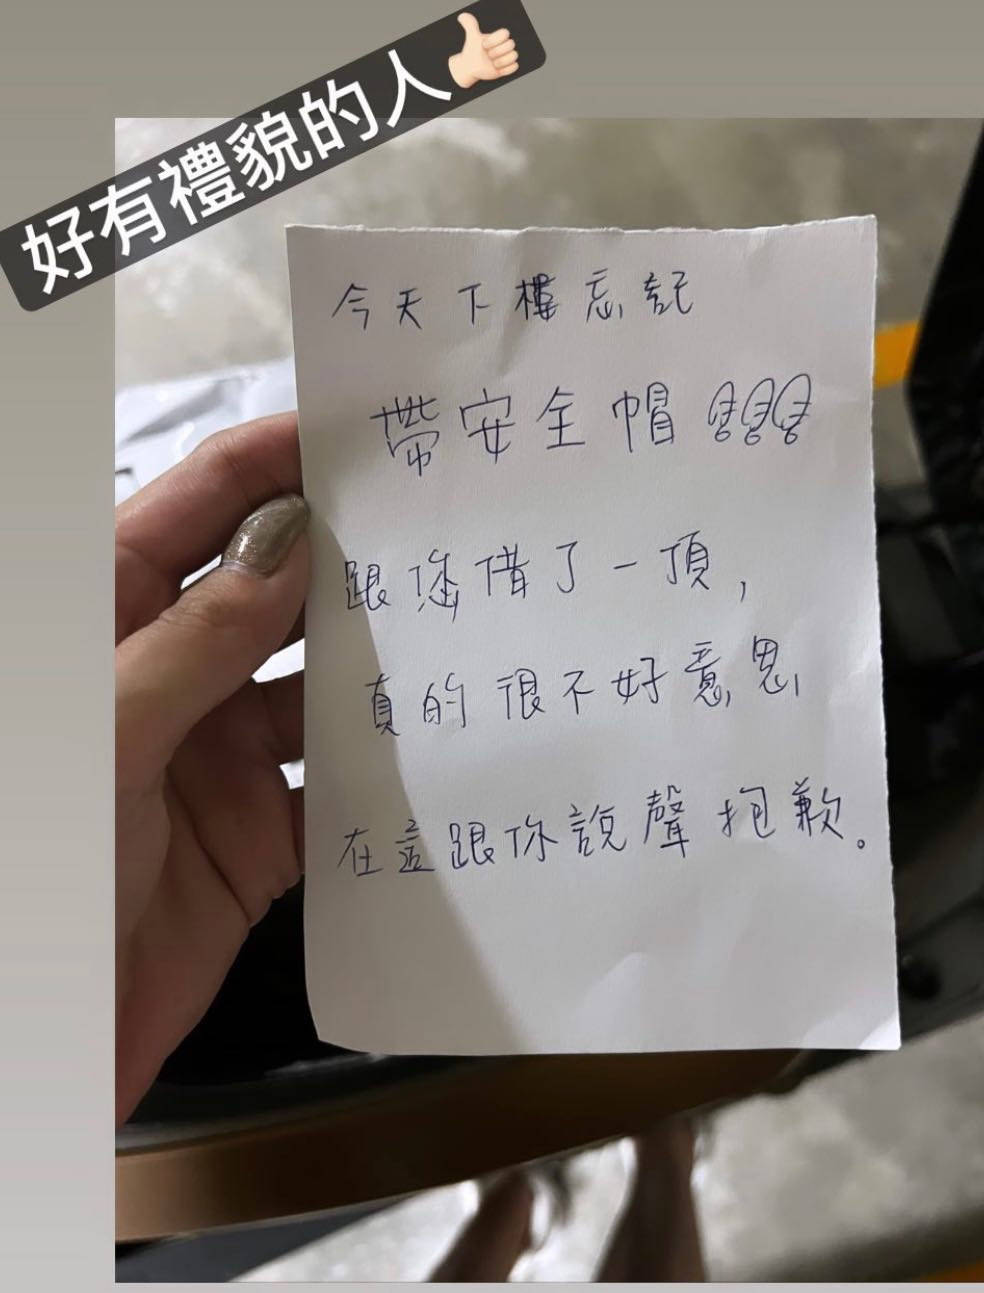 好有禮貌的人👍🏻
今天下樓忘記
帶安全帽
跟您借了一頂,
真的很不好意思,
在這跟你說聲抱歉。